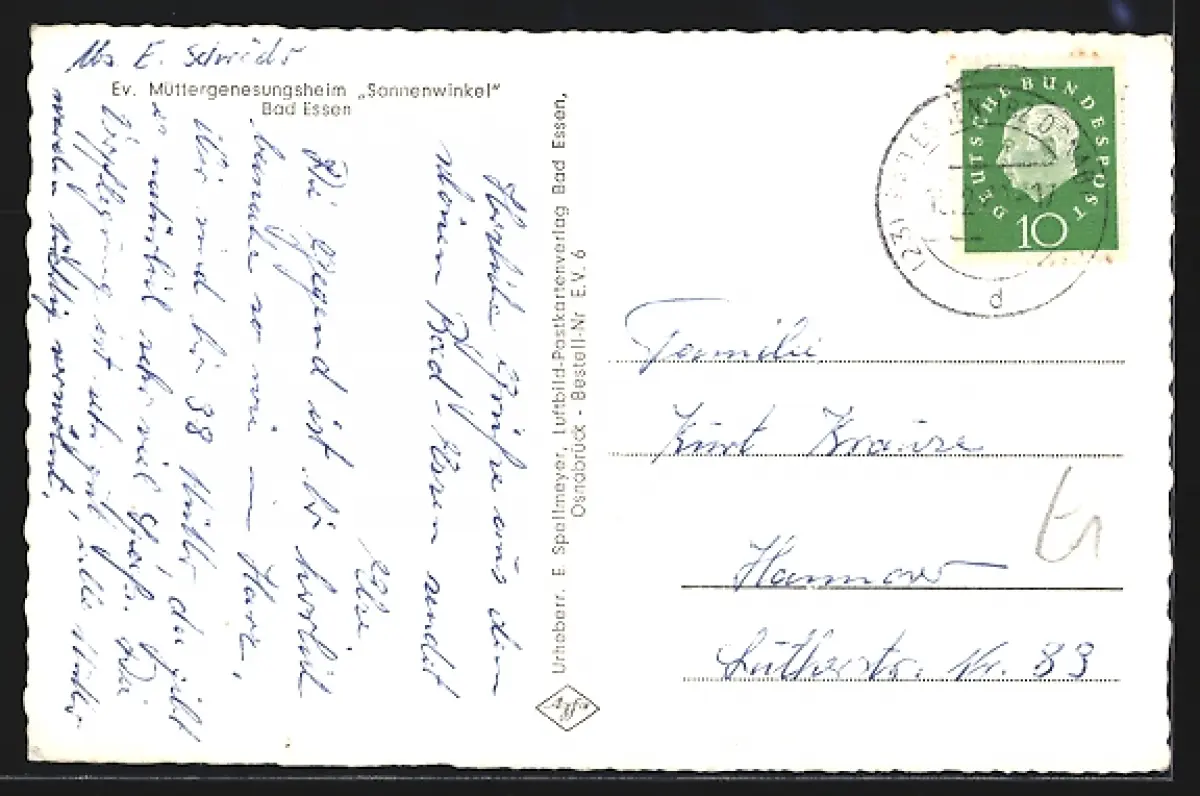 Abs. E. Schröder
Ev. Müttergenesungsheim „Sonnenwinkel“
Bad Essen
Herzliche Grüße aus dem
schönen Bad-Essen sendet
Else
Die Gegend ist hier herrlich
beinahe so wie im Harz,
Wir sind hier 38 Mütter, da gibt
es natürlich sehr viel Spaß. Die
Verpflegung ist sehr gut, alle Mütter
werden tüchtig verwöhnt.
Urheberr. E. Spellmeyer, Luftbild-Postkartenverlag Bad Essen,
Osnabrück - Bestell-Nr E.V. 6
Agfa
DEUTSCHE BUNDESPOST
10
(23)
d
Familie
Kurt Krause
Hannover
Lutherstr. Nr. 33